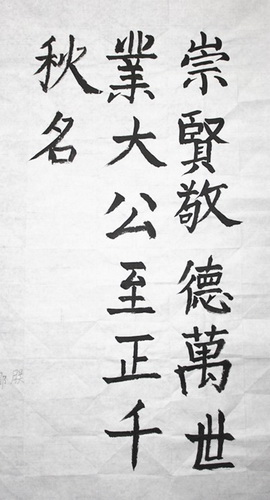 崇賢敬德萬世
業大公至正千
秋名